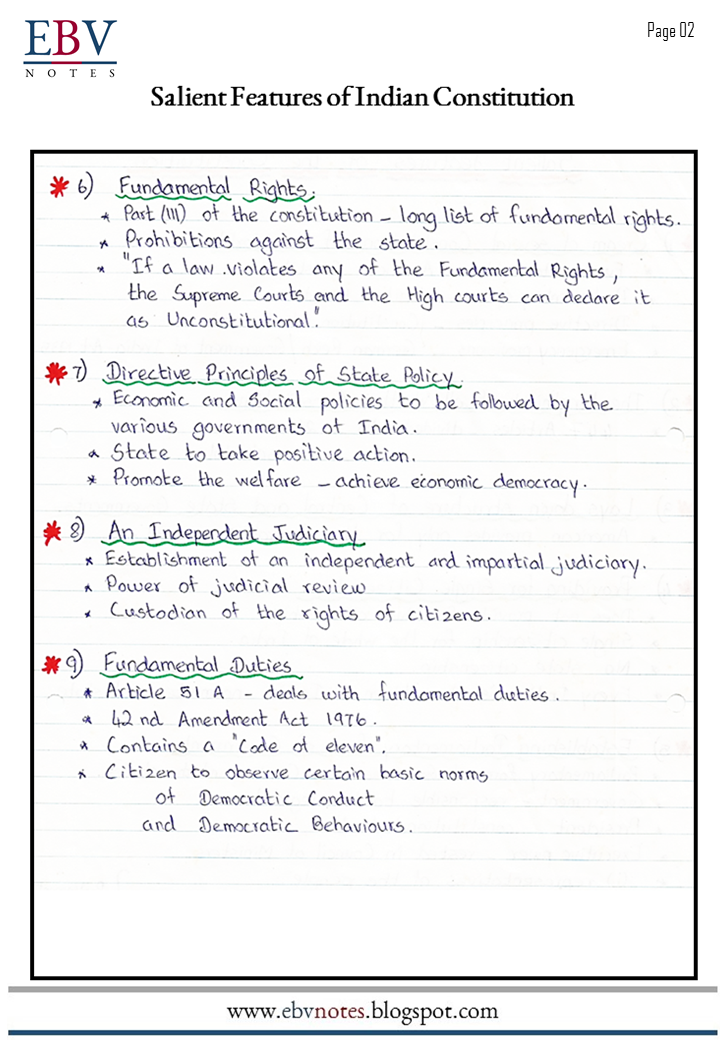 EBV
NOTES
Page 02
Salient Features of Indian Constitution
* 6) Fundamental Rights.
* Part (III) of the constitution – long list of fundamental rights.
* Prohibitions against the state.
* "If a law violates any of the Fundamental Rights,
the Supreme Courts and the High courts can declare it
as Unconstitutional".
* 7) Directive Principles of State Policy.
* Economic and Social policies to be followed by the
various governments of India.
* State to take positive action.
* Promote the welfare – achieve economic democracy.
* 8) An Independent Judiciary
* Establishment of an independent and impartial judiciary.
* Power of judicial review
* Custodian of the rights of citizens.
* 9) Fundamental Duties
* Article 51 A – deals with fundamental duties.
* 42 nd Amendment Act 1976.
* Contains a "Code of eleven".
* Citizen to observe certain basic norms
of Democratic Conduct
and Democratic Behaviours.
www.ebvnotes.blogspot.com